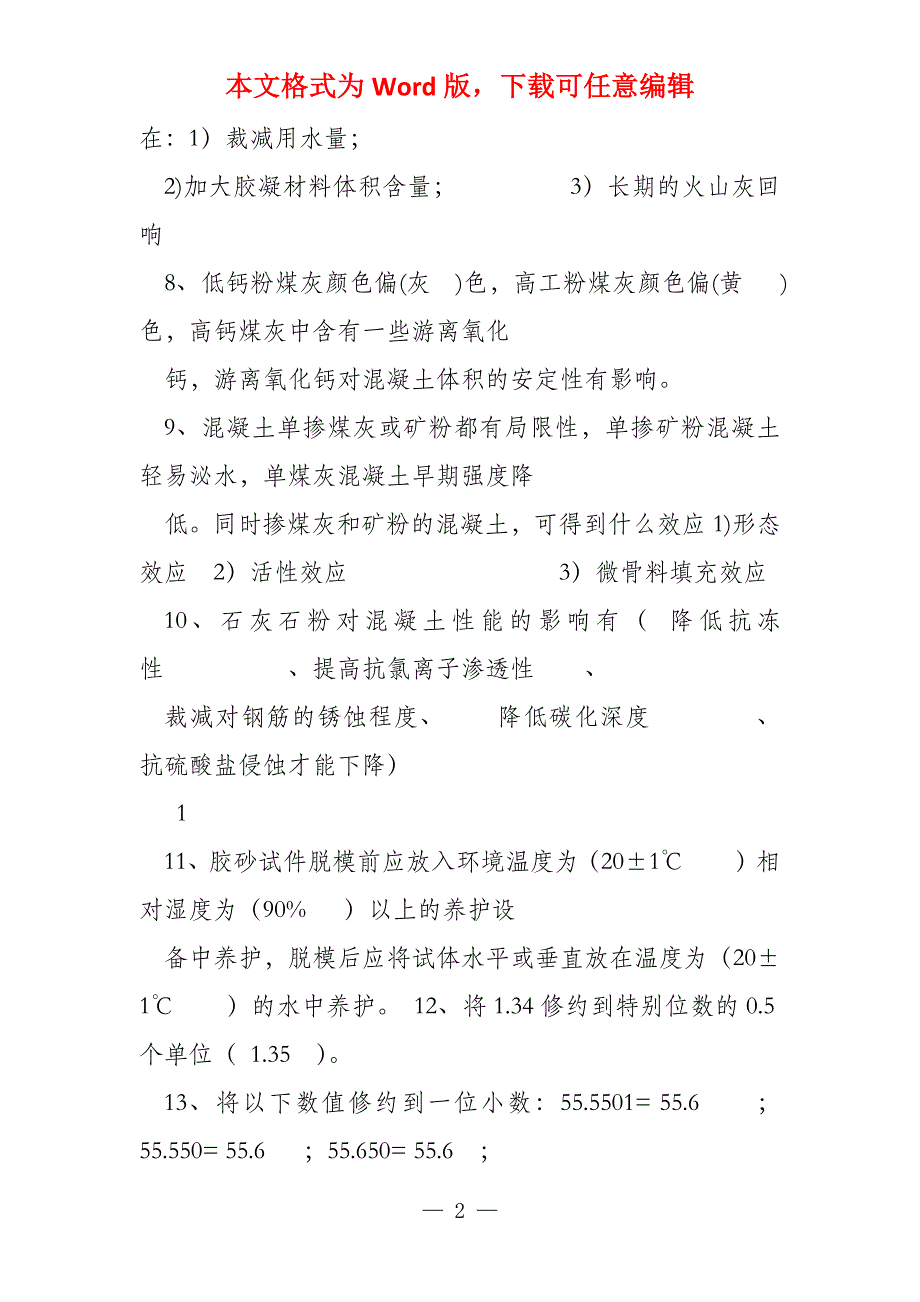 本文格式为 Word 版，下载可任意编辑
在：1）裁减用水量；
2)加大胶凝材料体积含量； 3）长期的火山灰回
响
8、低钙粉煤灰颜色偏(灰 )色，高工粉煤灰颜色偏(黄 )
色，高钙煤灰中含有一些游离氧化
钙，游离氧化钙对混凝土体积的安定性有影响。
9、混凝土单掺煤灰或矿粉都有局限性，单掺矿粉混凝土
轻易泌水，单煤灰混凝土早期强度降
低。同时掺煤灰和矿粉的混凝土，可得到什么效应 1)形态
效应 2）活性效应 3）微骨料填充效应
10、石灰石粉对混凝土性能的影响有（ 降低抗冻
性 、提高抗氯离子渗透性 、
裁减对钢筋的锈蚀程度、 降低碳化深度 、
抗硫酸盐侵蚀才能下降）
1
11、胶砂试件脱模前应放入环境温度为（20±1℃ ）相
对湿度为（90% ）以上的养护设
备中养护，脱模后应将试体水平或垂直放在温度为（20±
1℃ ）的水中养护。 12、将 1.34 修约到特别位数的 0.5
个单位（ 1.35 ）。
13、将以下数值修约到一位小数：55.5501= 55.6 ；
55.550= 55.6 ；55.650= 55.6 ；
— 2 —